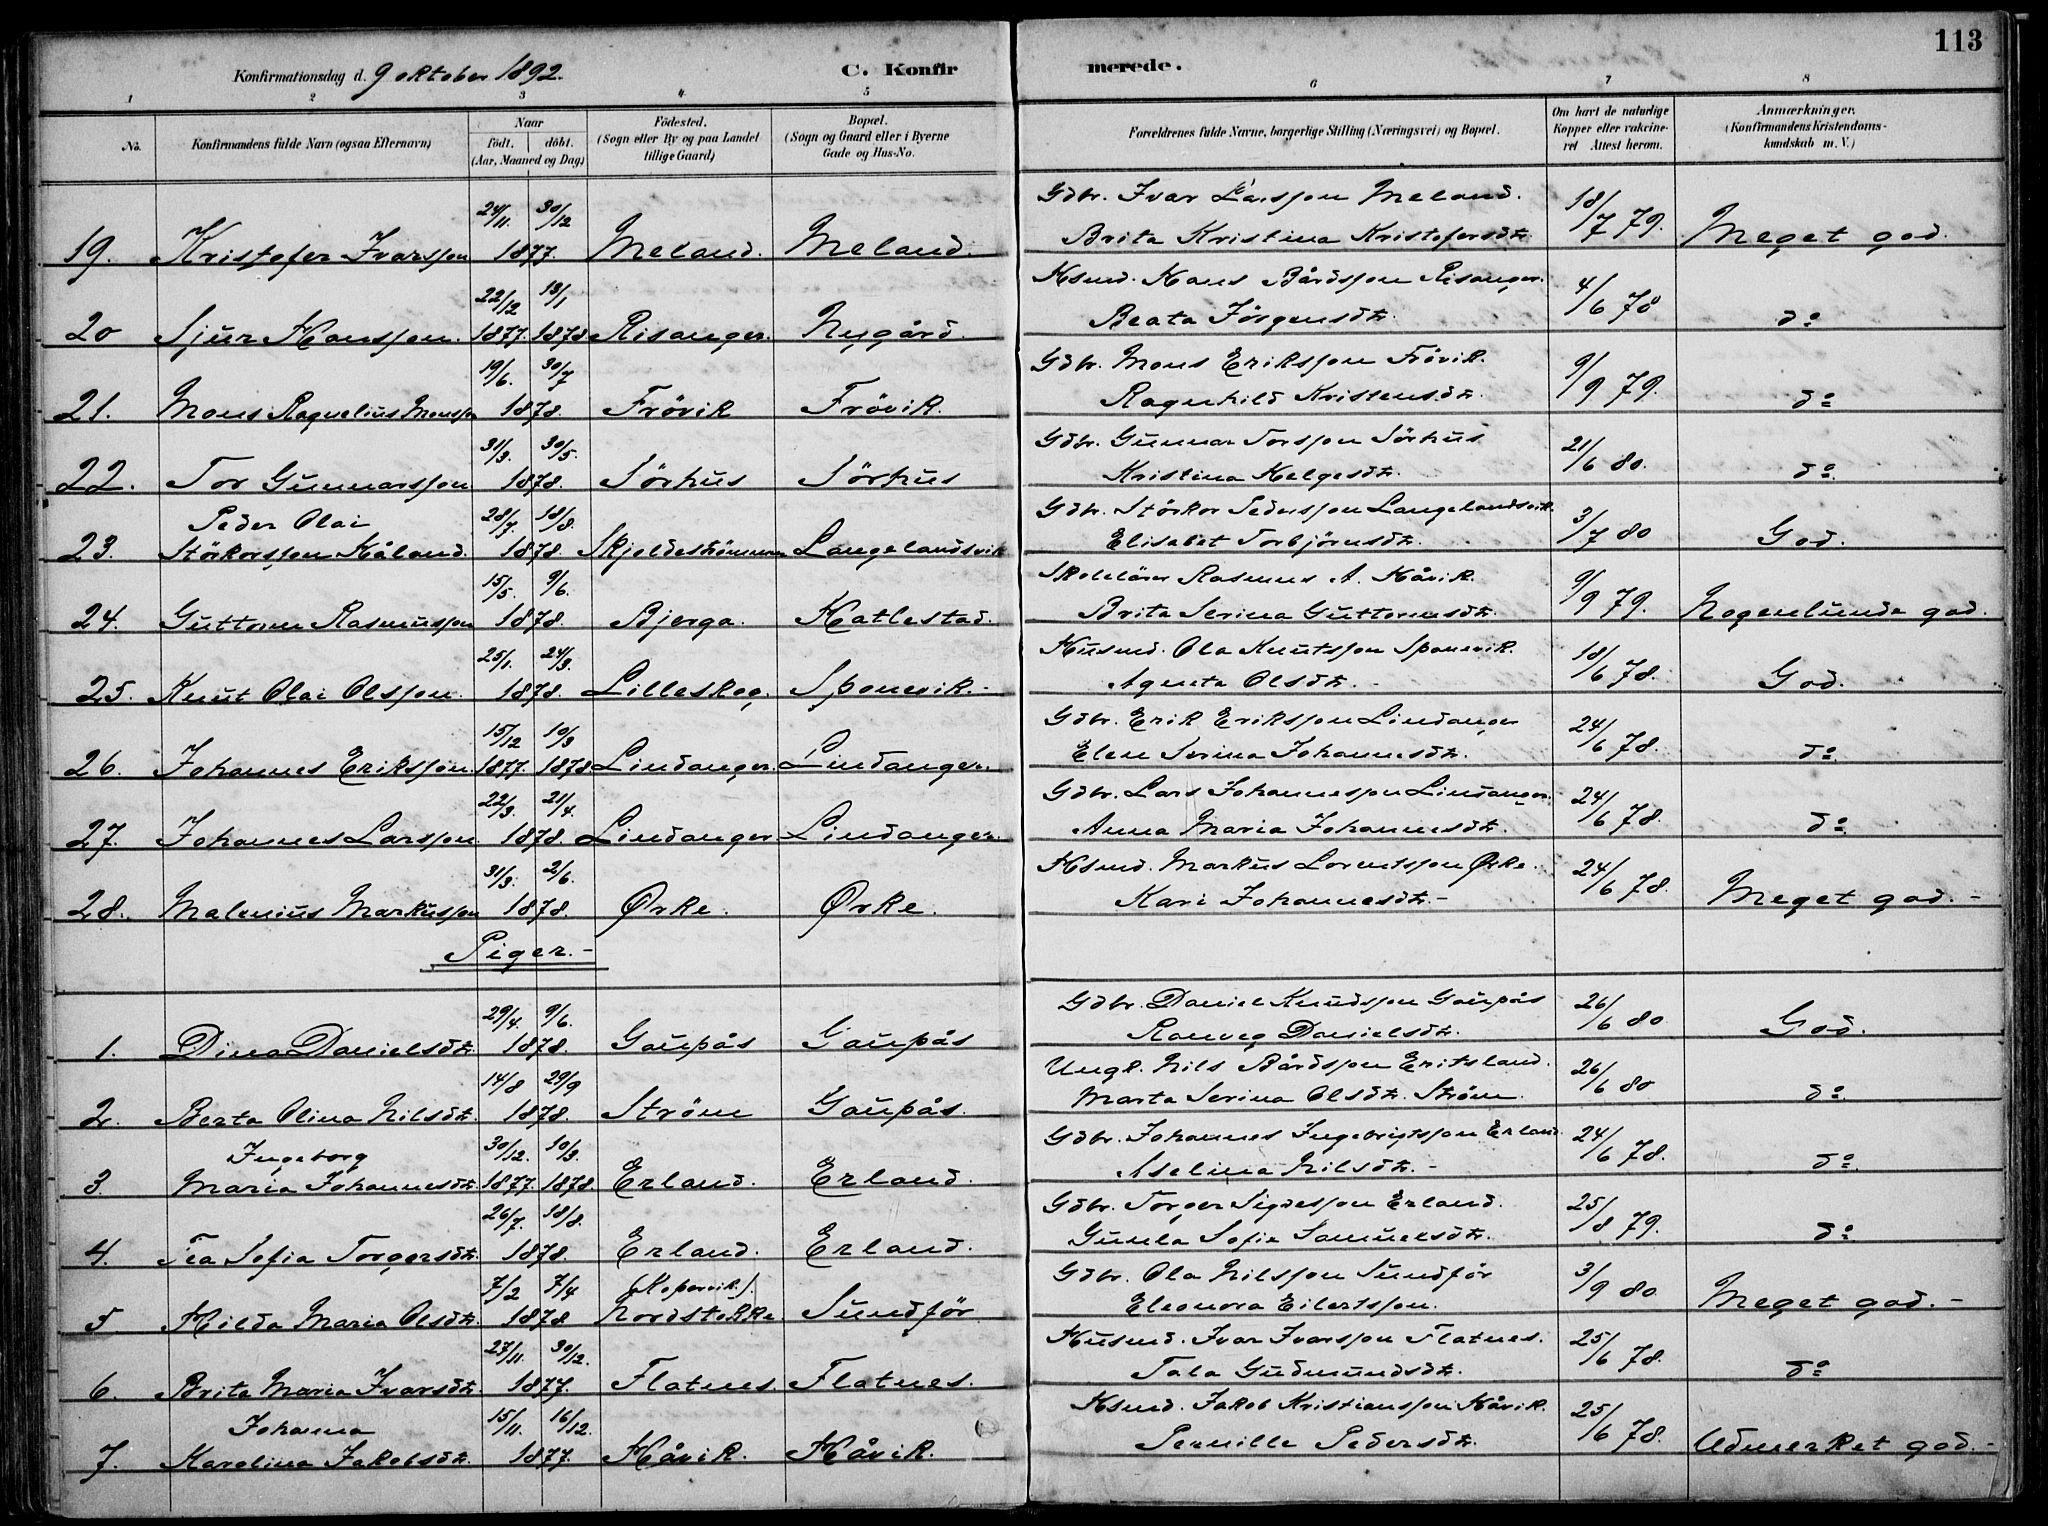 113
Konfirmationsdag d. 9 oktober 1892. C. Konfirmerede.
1 2 3 4 5 6 7 8
No. Konfirmandens fulde Navn (ogsaa Efternavn) Naar født. døbt. (Aar, Maaned og Dag) Fødested. (Sogn eller By og paa Landet tillige Gaard) Bopæl. (Sogn og Gaard eller i Byerne Gade og Hus-No. Forældrenes fulde Navne, borgerlige Stilling (Næringsvei) og Bopæl. Om havt de naturlige Kopper eller vakcineret Attest herom. Anmærkninger, (Konfirmandens Kristendomskundskab m. V.)
24/11. 30/12 Gdbr. Ivar Larsson Meland. 18/7 79.
19. Kristofer Ivarsson 1877. Meland. Meland. Brita Kristina Kristofersdtr. Meget god.
22/12 13/1 Hsmd. Hans Bårdsson Risanger. 4/6 78
20 Sjur Hansson. 1877. 1878 Risanger. Nygård. Beata Jörgensdtr. do
19/6. 30/7 Gdbr. Mons Eriksson Frövik. 9/9 79.
21. Mons Ragnelius Monsson 1878. Frövik Frövik. Ragnhild Kristensdtr. do
31/3. 30/5. Gdbr. Gunnar Torsson Sörhus 21/6 80.
22. Tor Gunnarsson 1878. Sörhus Sörhus Kristina Helgesdtr. do
Peder Olai 28/7. 18/8. Gdbr. Störkor Pedersson Langelandsvik 3/7 80
23. Störkorsson Håland. 1878. Skjoldestrømmen Langelandsvik Elisabet Torbjörnsdtr. God.
15/5. 9/6. Skolelärer Rasmus A. Håvik. 9/9 79.
24. Guttorm Rasmusson 1878. Bjerga. Hatlestad. Brita Serina Guttormsdtr. Nogenlunde god.
25/1. 24/3. Husmd. Ola Knutsson Sponevik. 18/6 78.
25. Knut Olai Olsson. 1878. Lilleskog. Sponevik. Agneta Olsdtr. God.
15/12 10/3 Gdbr. Erik Eriksson Lindanger 24/6 78.
26. Johannes Eriksson. 1877. 1878 Lindanger. Lindanger. Elen Serina Johannesdtr. do
22/3. 21/4. Gdbr. Lars Johannesson Lindanger. 24/6 78.
27. Johannes Larsson. 1878. Lindanger Lindanger. Anna Maria Johannesdtr. do
31/3. 2/6. Hsmd. Markus Lorentsson Ørke. 24/6 78.
28. Malenius Markusson 1878. Ørke. Ørke. Kari Johannesdtr. Meget god.
Piger.
29/4. 9/6. Gdbr. Daniel Knudsson Gaupås 26/6 80
1. Dina Danielsdtr. 1878. Gaupås Gaupås Ranveg Danielsdtr. God.
14/8 29/9 Ungk. Nils Bårdsson Eritsland. 26/6 80
2. Berta Olina Nilsdtr. 1878. Ström Gaupås. Marta Serina Olsdtr. Ström. do
Ingeborg 30/12. 10/3. Gdbr. Johannes Ingebrigtsson Erland 24/6 78.
3. Maria Johannesdtr. 1877. 1878. Erland. Erland. Aselina Nilsdtr. do
26/7. 18/8. Gdbr. Torger Sigvesson Erland. 25/8 79.
4. Tea Sofia Torgersdtr. 1878. Erland. Erland. Gunla Sofie Samuelsdtr. do
7/2 7/4 (Kopervik). Gdbr. Ola Nilsson Sundför 3/9 80
5 Hilda Maria Olsdtr. 1878 Nordstokke Sundför. Eleonora Eilertsson. Meget god.
27/11. 30/12. Husmd. Ivar Ivarsson Flatnes. 25/6 78.
6. Brita Maria Ivarsdtr. 1877. Flatnes. Flatnes. Tala Gudmundsdtr. do
Johanna 15/11. 16/12. Hsmd. Jakob Kristiansson Håvik. 25/6 78.
7. Karolina Jakobsdtr. 1877. Håvik. Håvik. Pernille Pedersdtr. Udmerket god.